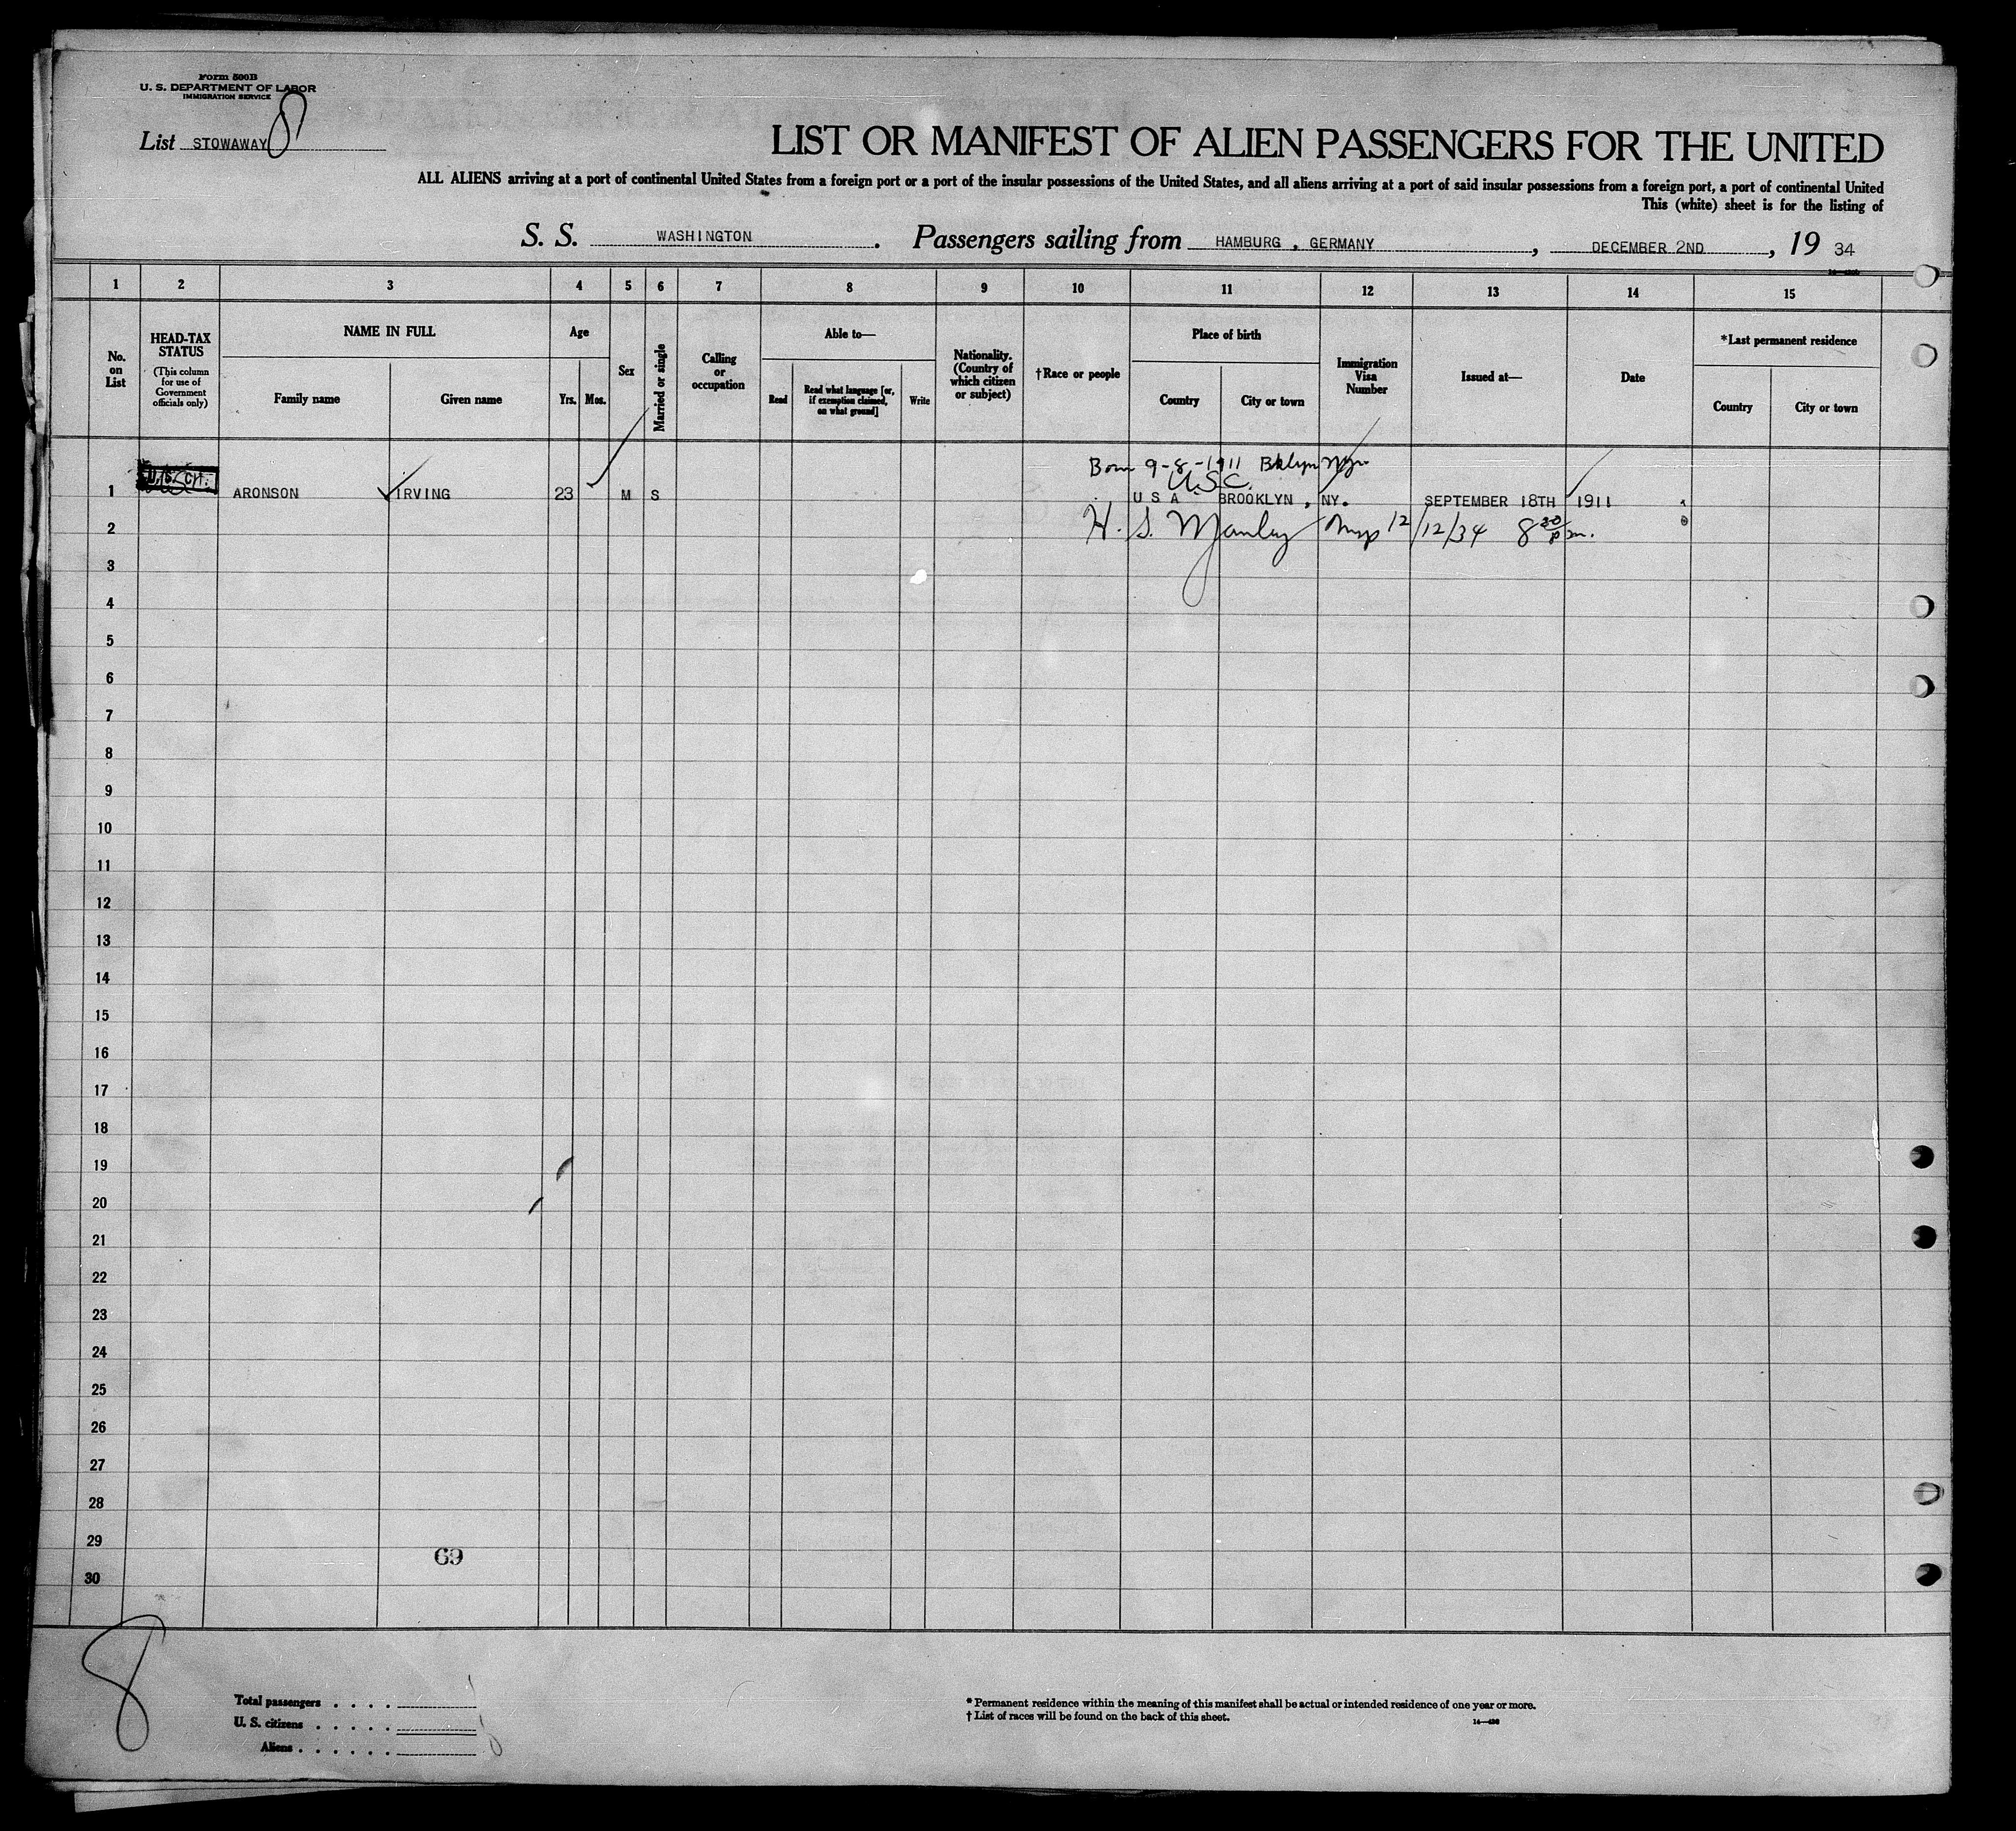 Form 500B
U. S. DEPARTMENT OF LABOR
IMMIGRATION SERVICE
List STOWAWAY 8
LIST OR MANIFEST OF ALIEN PASSENGERS FOR THE UNITED
ALL ALIENS arriving at a port of continental United States from a foreign port or a port of the insular possessions of the United States, and all aliens arriving at a port of said insular possessions from a foreign port, a port of continental United
This (white) sheet is for the listing of
S. S. WASHINGTON. Passengers sailing from HAMBURG, GERMANY, DECEMBER 2ND, 19 34
1 2 3 4 5 6 7 8 9 10 11 12 13 14 15
No. on List
HEAD-TAX STATUS
(This column for use of Government officials only)
NAME IN FULL
Family name
Given name
Age
Yrs.
Mos.
Sex
Married or single
Calling or occupation
Able to—
Read
Read what language [or, if exemption claimed, on what ground]
Write
Nationality. (Country of which citizen or subject)
†Race or people
Place of birth
Country
City or town
Immigration Visa Number
Issued at—
Date
*Last permanent residence
Country
City or town
Born 9-8-1911 Bklyn
U.S.C.
1 U.S. CIT. ARONSON IRVING 23 M S U S A BROOKLYN, NY. SEPTEMBER 18TH 1911
2 H. S. Manley Insp 12/12/34 8 30 p m.
3
4
5
6
7
8
9
10
11
12
13
14
15
16
17
18
19
20
21
22
23
24
25
26
27
28
29
69
30
8
Total passengers . . . .
U. S. citizens . . . . .
Aliens . . . . . .
* Permanent residence within the meaning of this manifest shall be actual or intended residence of one year or more.
† List of races will be found on the back of this sheet.